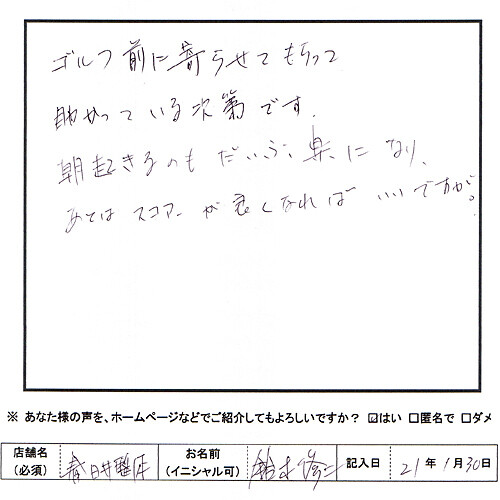 ゴルフ前に寄らせてもらって
助かっている次第です。
朝起きるのもだいぶ、楽になり、
あとはスコアーが良くなればいいですが。
※ あなた様の声を、ホームページなどでご紹介してもよろしいですか？ ☑はい □匿名で □ダメ
店舗名（必須） 春日井 お名前（イニシャル可） 鈴木修二 記入日 21年1月30日